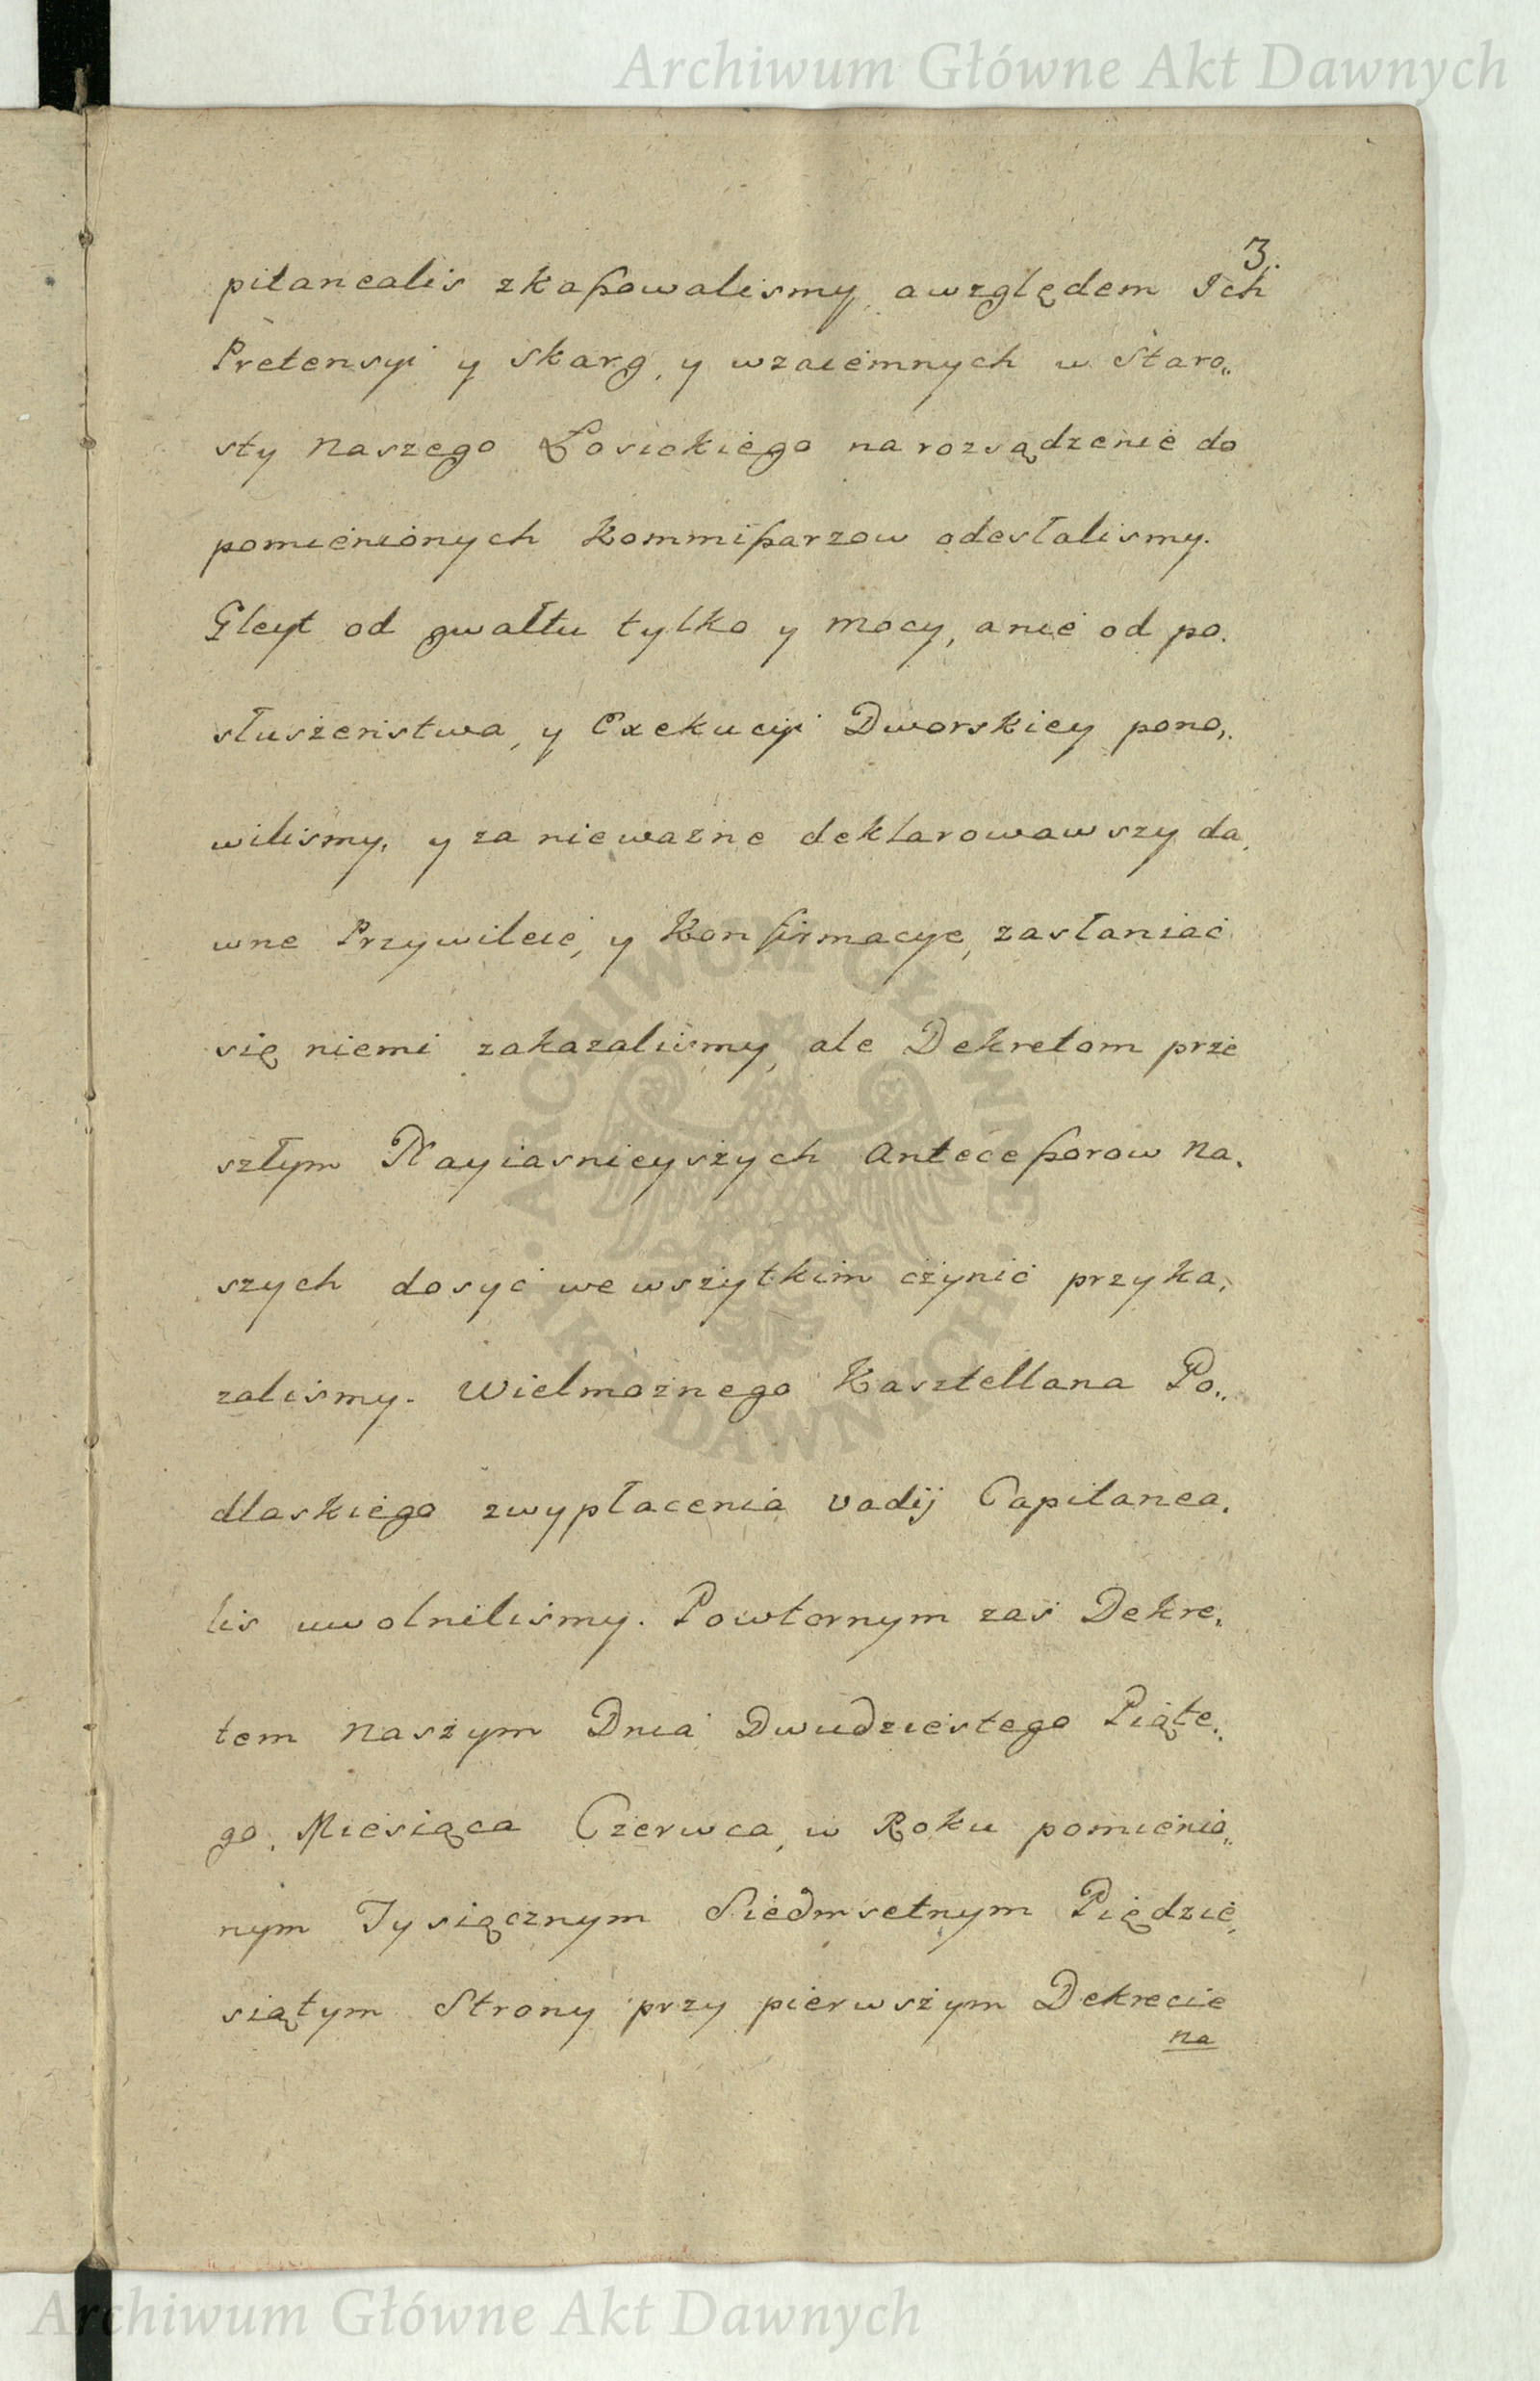 Archiwum Główne Akt Dawnych
3.
pitanealis zkaßowalismy, awzględem Ich
Pretensyi y skarg, y wzaiemnych u Staro„
sty Naszego Łosickiego na rozsądzenie do
pomienionych Kommißarzow odesłalismy.
Gleyt od gwałtu tylko y mocy, a nie od po.
słuszenstwa, y Exekucyi Dworskiey pono„
wilismy, y za nieważne deklarowawszy da,
wne Przywileie, y Konfirmacye, zasłaniać
się niemi zakazalismy, ale Dekretom prze
szłym Nayiasnieyszych Anteceßorow Na,
szych dosyć we wszytkim czynić przyka,
zalismy. Wielmożnego Kasztellana Po„
dlaskiego zwypłacenia vadij Capitanea,
lis uwolnilismy. Powtornym zaś Dekre,
tem naszym Dnia Dwudziestego Piąte„
go, Miesiąca Czerwca, w Roku pomienio„
nym Tysiącznym Siedmsetnym Piędzie,
siątym Strony przy pierwszym Dekrecie
na
ARCHIWUM GŁÓWNE · AKT DAWNYCH ·
Archiwum Główne Akt Dawnych